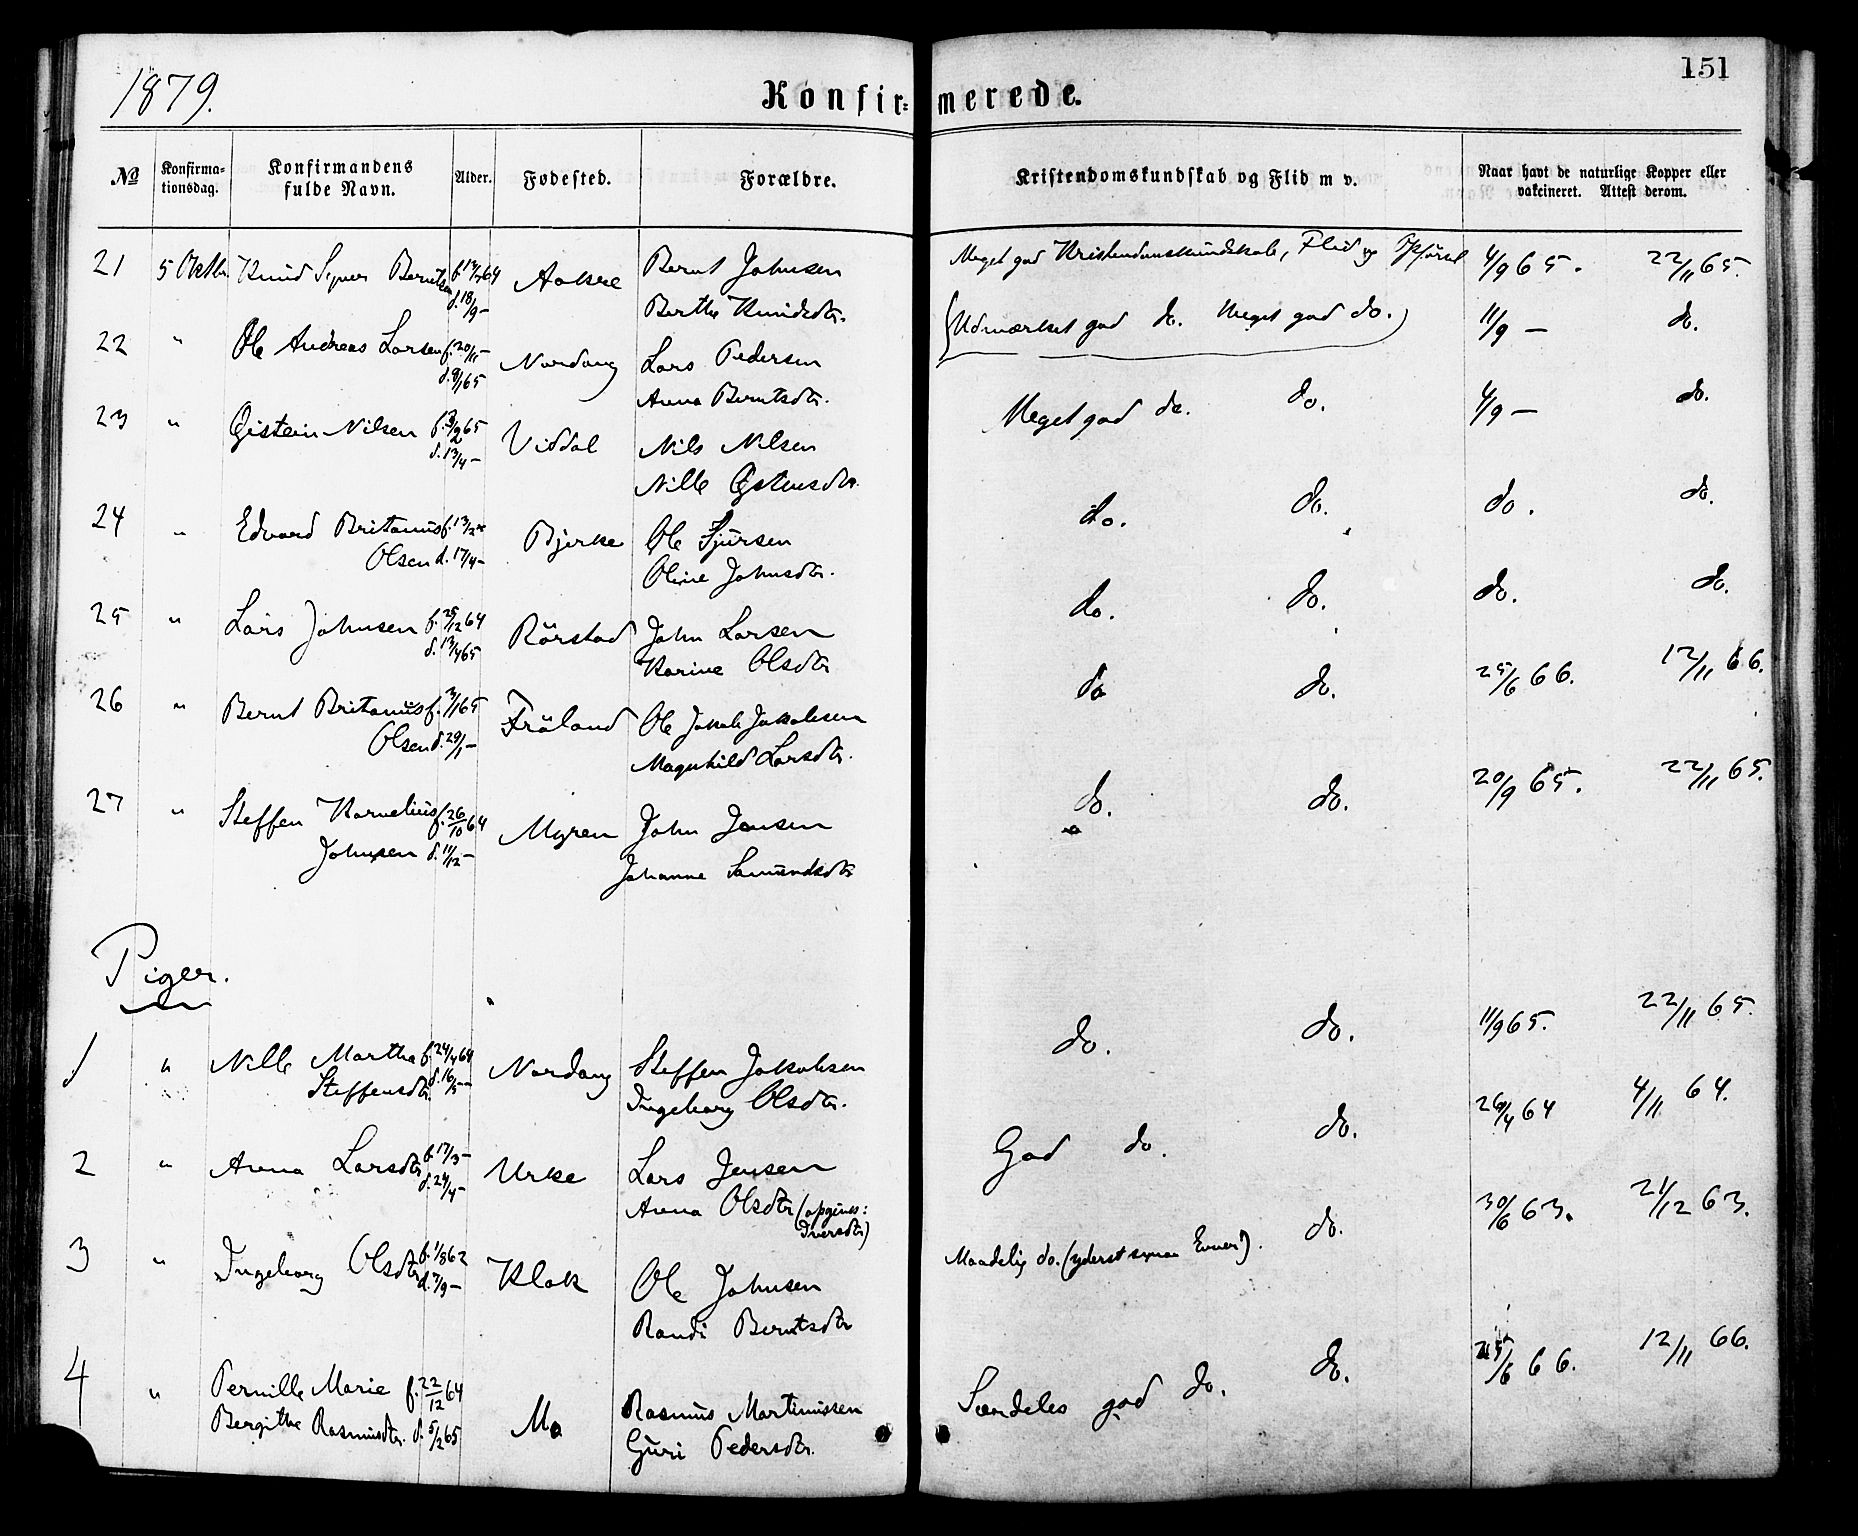 1879.
Konfir= merede.
151
No
Konfirma=
tionsdag.
Konfirmandens
fulde Navn.
Alder.
Fødested.
Forældre.
Kristendomskundskab og Flid m v.
Naar havt de naturlige Kopper eller
vakcineret. Attest derom.
21 5 Oktbr Knud Syver Berntsen f. 64 Aakre Bernt Johnsen Meget god Kristendomskundskab, Flid og Opførsel 4/9 65. 22/11 65.
d. 18/9 – Berthe Knudsdtr.
22 " Ole Andreas Larsen f. 20/11 – Nordang Lars Pedersen (Udmærket god do. Meget god do.) 11/9 – do.
d. 9/1 65 Anna Berntsdtr.
23 " Øistein Nilsen f. 3/2 65 Viddal Nils Nilsen Meget god do. do. 4/9 – do.
d. 13/4 – Nille Østensdtr.
24 " Edvard Britanus f. 13/2 Bjerke Ole Sjursen do. do. do. do.
Olsen d. 17/4 – Oline Johnsdtr.
25 " Lars Johnsen f. 25/12 64 Rörstad John Larsen do. do. do. do.
d. 13/4 65 Karine Olsdtr
26 " Bernt Britanus f. 3/1 65 Fröland Ole Jakob Jakobsen do do. 25/6 66. 12/11 66.
Olsen d. 29/1 – Magnhild Larsdtr.
27 " Steffen Kornelius f. 26/10 64 Myren John Jensen do. do. 20/9 65. 22/11 65.
Johnsen d. 11/12 – Johanne Samundsdtr
Piger.
1 " Nille Martha f. 24/4 64 Nordang Steffen Jakobsen do. do. 11/9 65. 22/11 65.
Steffensdtr. d. 16/5 – Ingeborg Olsdtr.
2 " Anna Larsdtr f. 17/3 – Urke Lars Jensen God do. do. 26/4 64 4/11 64.
d. 24/4 – Anna Olsdtr (opgives:
Iversdtr)
3 " Ingeborg Olsdtr f. 1/8 62 Klok Ole Johnsen Maadelig do. (yderst svage Evner). do. 30/6 63. 21/12 63.
d. 7/9 – Randi Berntsdtr
4 " Pernille Marie f. 22/12 64 Mo Rasmus Martinussen Særdeles god do. do. 25/6 66. 12/11 66.
Bergithe Rasmusdtr. d. 5/2 65 Guri Pedersdtr.